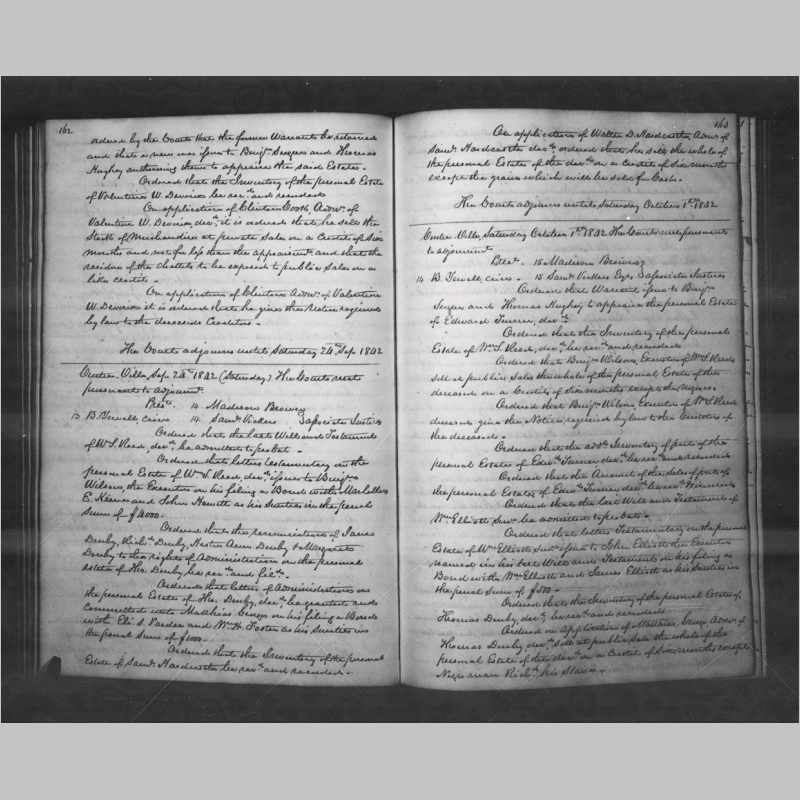 162
ordered by the Courts that the former Warrants be returned
and that a new one issue to Benjn. Seegar and Thomas
Hughey authorising them to appraise the said Estate.
Ordered that the Inventory of the personal Estate
of Valentine W. Devorix be recd. and recorded
On application of Clinton Cook, Admr. of
Valentine W. Devorix, decd. it is ordered that he sell the
Stock of Merchandise at private Sale on a Credit of Six
months and not for less than the appraisement and that the
residue of the chattels to be exposed to public sale on a
like credit.
On application of Clinton Admr. of Valentine
W. Devorix it is ordered that he give the Notice required
by law to the deceaseds Creditors.
The Court adjourns until Saturday 24th Sep. 1842
Centre Ville, Sep. 24th 1842 (Saturday) The Courts meets
pursuant to adjournmt.
Prest. 14 Madison Browns
13 B. Tewell, Admr. 14 Saml. Vickers Associate Justices
Ordered that the last Will and Testament
of Wm. S. Reed, decd. be admitted to probat.
Ordered that letters testamentary on the
personal Estate of Wm. S. Reed, decd. issue to Benjn.
Wilson, the Executor on his filing a Bond with
E. Keene and John Hewitt as his Sureties in the penal
Sum of $4000.
Ordered that the renunciations of James
Denby, Richd. Denby, Hester Ann Denby & Margaret
Denby to the rights of Administration on the personal
Estate of Tho. Denby, be recd. and filed.
Ordered that letters of Administration on
the personal Estate of Tho. Denby, decd. be granted and
committed unto Matthias George on his filing a Bond
with Eli S. Pardee and Wm. H. Foster as his Sureties in
the penal Sum of $1000
Ordered that the Inventory of the personal
Estate of Saml. Hardcastle be recd. and recorded.
163
On application of Walter D. Hardcastle, Admr. of
Saml. Hardcastle decd. ordered that he sell the whole of
the personal Estate of the decd. on a Credit of Six months
except the grain which will be sold for Cash.
The Courts adjourns until Saturday October 1st 1842
Centre Ville, Saturday October 1st 1842 The Courts meets pursuant
to adjournmt.
Prest. 15 Madison Browns
14 B. Tewell, Admr. 15 Saml. Vickers Esqs. Associate Justices
Ordered that Warrant issue to Benjn.
Seegar and Thomas Hughey to appraise the personal Estate
of Edward Turner, decd.
Ordered that the Inventory of the personal
Estate of Wm. S. Reed, decd. be recd. and recorded
Ordered that Benjn. Wilson, Executor of Wm. S. Reed
sell at public Sale the whole of the personal Estate of the
deceased on a Credit of Six months except the
Ordered that Benjn. Wilson, Executor of Wm. S. Reed
deceased give the Notice required by law to the Creditors of
the deceased.
Ordered that the addl. Inventory of part of the
personal Estate of Edwd. Turner decd. be recd. and recorded
Ordered that the Amount of the Sales of part of
the personal Estate of Edwd. Turner, decd. be recd. & recorded
Ordered that the last Will and Testament of
Wm. Elliott Senr. be admitted to probat.
Ordered that letters Testamentary on the personal
Estate of Wm. Elliott Senr. issue to John Elliott the Executor
named in his last Will and Testament on his filing a
Bond with Wm. Elliott and James Elliott as his Sureties in
the penal Sum of $500.
Ordered that the Inventory of the personal Estate of
Thomas Denby, decd. be recd. and recorded
Ordered on application of Matthias George Admr. of
Thomas Denby, decd. sell at public Sale the whole of the
personal Estate of the decd. on a Credit of Six months except
Negro man Richd. his Slave.